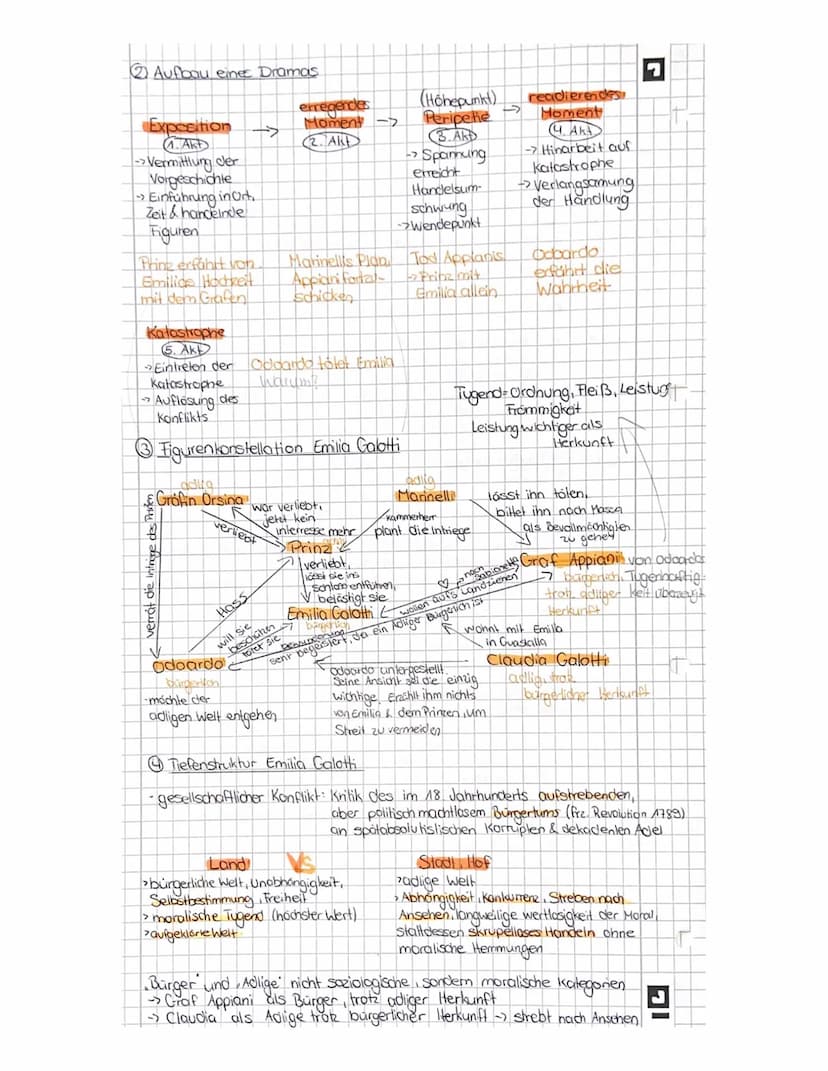 ② Aufbau eines Dramas
Exposition
1. Akt
-> Vermittlung der
Vorgeschichte
-> Einführung in Ort,
Zeit & handelnde
Figuren
Prinz erfährt von
Emilias Hochzeit
mit dem Grafen
->
erregendes
Moment
2. Akt
Marinellis Plan,
Appiani fortzu-
schicken
->
(Höhepunkt)
Peripetie
3. Akt
-> Spannung
erreicht
Handelsum-
schwung
-> Wendepunkt
Tod Appianis
-> Prinz mit
Emilia allein
->
readierendes
Moment
4. Akt
-> Hinarbeit auf
Katastrophe
-> Verlangsamung
der Handlung
Odoardo
erfährt die
Wahrheit
Katastrophe
5. Akt
-> Eintreten der
Katastrophe
-> Auflösung des
Konflikts
Odoardo tötet Emilia
Warum?
Tugend = Ordnung, Fleiß, Leistung
Frömmigkeit
Leistung wichtiger als
Herkunft
③ Figurenkonstellation Emilia Galotti
adlig
Gräfin Orsina
verrät die Intrige des Prinzen
war verliebt,
jetzt kein
interresse mehr
verliebt
adlig
Marinelli
Kammerherr
plant die Intriege
lässt ihn töten,
bittet ihn nach Massa
als Bevollmächtigten
zu gehen
Prinz
verliebt,
lässt sie ins
Schloss entführen,
belästigt sie
Hass
Graf Appiani
von Odoardos
Tugenhaftig-
keit überzeugt
bürgerlich,
trotz adliger
Herkunft
nach Sabionetta
wollen aufs Land ziehen
Emilia Galotti
bürgerlich
will sie
beschützen
tötet sie
Bewunderung
sehr begeistert, da ein Adliger Bürgerlich ist
wohnt mit Emilia
in Guastalla
Odoardo
bürgerlich
- möchte der
adligen Welt entgehen
Claudia Galotti
adlig, trotz
bürgerlicher Herkunft
Odoardo untergestellt
Seine Ansicht sei die einzig
wichtige. Erzählt ihm nichts
von Emilia & dem Prinzen, um
Streit zu vermeiden
④ Tiefenstruktur Emilia Galotti
- gesellschaftlicher Konflikt: Kritik des im 18. Jahrhunderts aufstrebenden,
aber politisch machtlosem Bürgertums (frz. Revolution 1789)
an spätabsolutistischen korrupten & dekadenten Adel
Land
> bürgerliche Welt, Unabhängigkeit,
Selbstbestimmung, Freiheit
> moralische Tugend (höchster Wert)
> aufgeklärte Welt
VS
Stadt, Hof
> adlige Welt
> Abhängigkeit, Konkurrenz, Streben nach
Ansehen, langweilige wertlosigkeit der Moral,
stattdessen skrupelloses Handeln ohne
moralische Hemmungen
„Bürger" und „Adlige" nicht soziologische, sondern moralische Kategorien
-> Graf Appiani als Bürger, trotz adliger Herkunft
-> Claudia als Adlige trotz bürgerlicher Herkunft -> strebt nach Ansehen